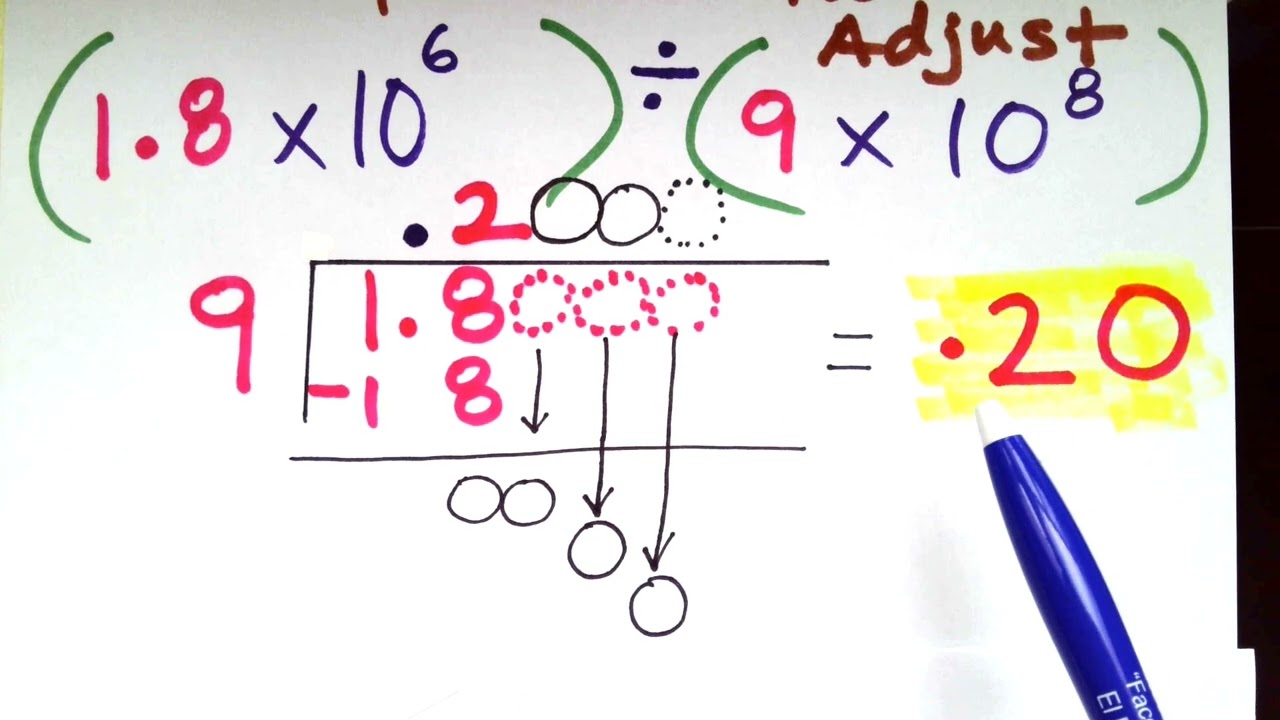 Adjust
(1.8 × 10⁶) ÷ (9 × 10⁸)
.2000
9 1.8000
-18 = .20
00
0
0
"Fac
El